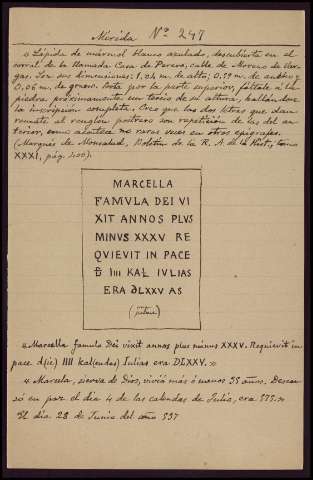 Mérida Nº 247
« Lápida de mármol blanco azulado, descubierta en el
corral de la llamada Casa de Pereros, calle de Moreno de Var-
gas. Son sus dimensiones: 1,04 m. de alto; 0,59 m. de ancho y
0,06 m. de grueso. Rota por la parte superior, fáltale a la
piedra próximamente un tercio de su altura, hallándose
la inscripción completa. Creo que las dos letras que dan
remate al renglón postrero son repetición de las del an-
terior, como acontece no raras veces en otros epígrafes.
(Marqués de Monsalud, Boletín de la R. A. de la Hist., tomo
XXXI, pág. 400).
MARCELLA
FAMVLA DEI VI
XIT ANNOS PLVS
MINVS XXXV RE
QVIEVIT IN PACE
Đ IIII KAŁ IVLIAS
ERA DLXXV AS
« Marcella famula Dei vixit annos plus minus XXXV. Requievit in
pace d(ie) IIII kal(endas) Julias era DLXXV. »
« Marcela, sierva de Dios, vivió más ó menos 35 años. Descan-
só en paz el día 4 de las calendas de Julio, era 575. »
El día 28 de Junio del año 537